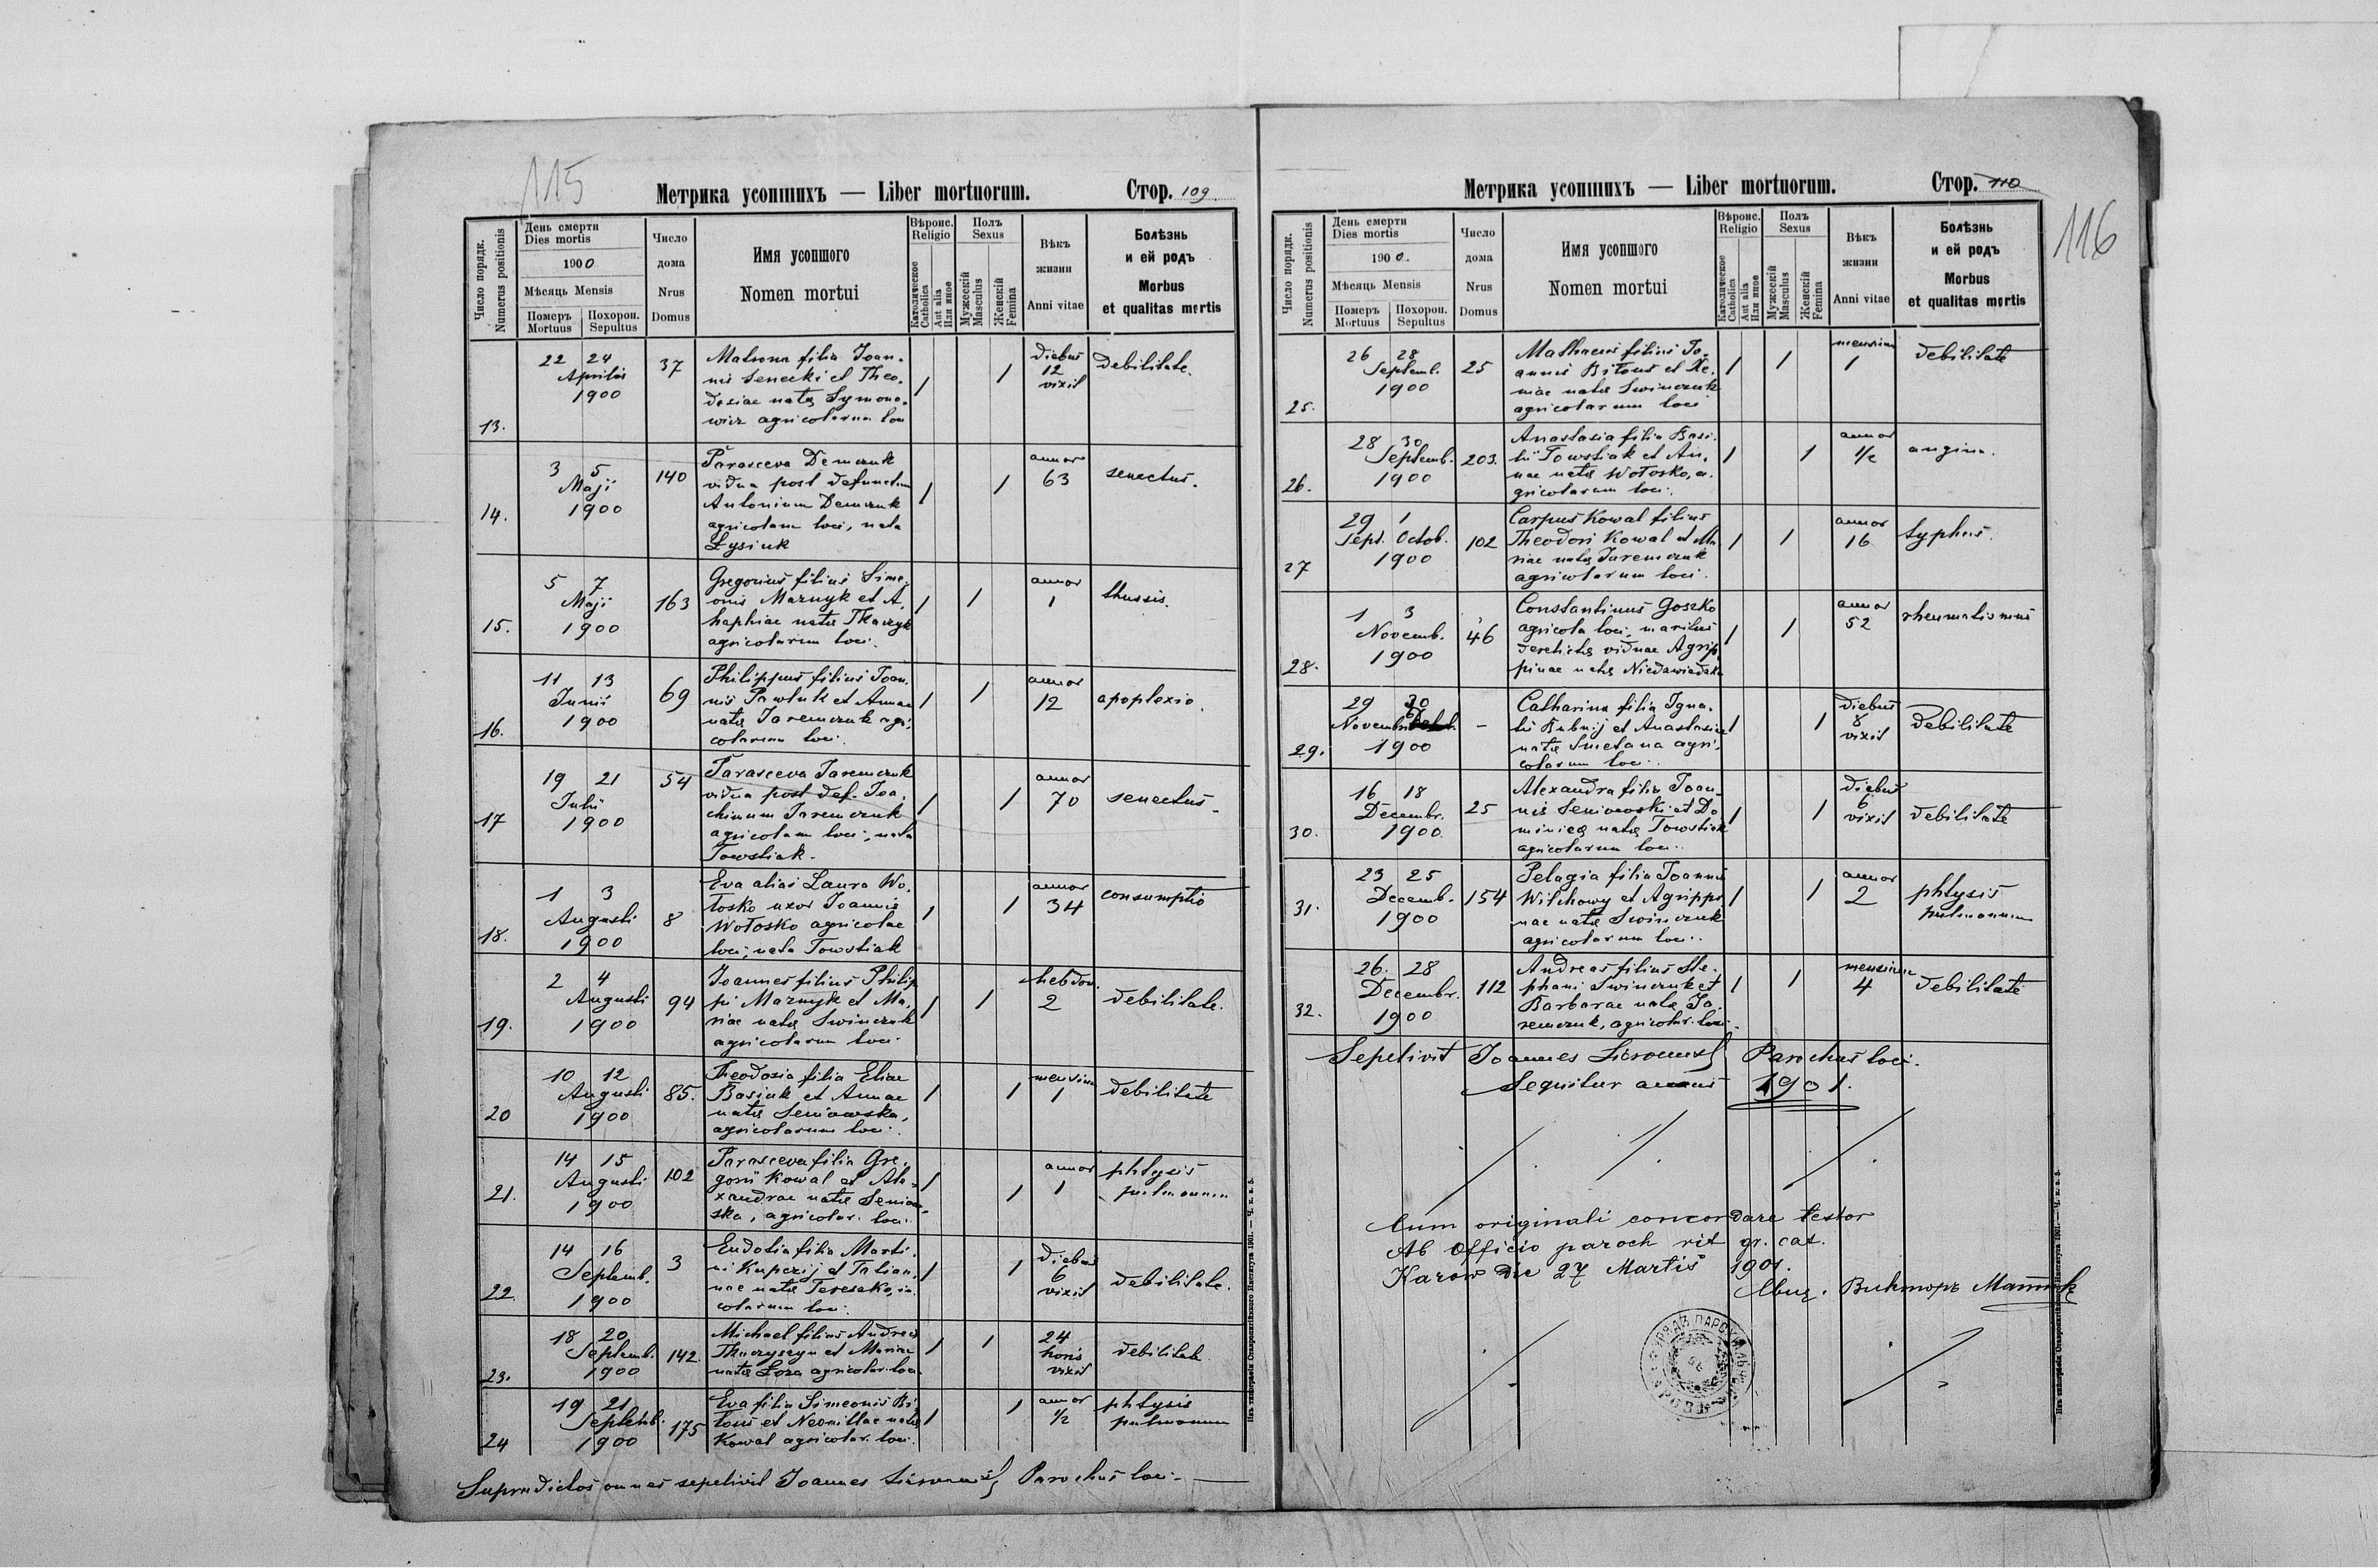 115
Метрика усопшихъ — Liber mortuorum. Стор. 109
Число порядк. Numerus positionis
День смерти Dies mortis
1900
Мѣсяць Mensis
Померъ Mortuus
Похорон. Sepultus
Число дома Nrus Domus
Имя усопшого Nomen mortui
Вѣроис. Religio
Католическое Catholica
Aut alia Или иное
Полъ Sexus
Мужескій Masculus
Женскій Femina
Вѣкъ жизни Anni vitae
Болѣзнь и ей родъ Morbus et qualitas mortis
13.
22 24
Aprilis
1900
37
Matrona filia Joan-
nis Senecki et Theo-
dosiae natę Symono-
wicz agricolarum loci
1
1
diebus
12
vixit
debilitate.
14.
3 5
Maji
1900
140
Parasceva Demczuk
vidua post defunctum
Antonium Demczuk
agricolam loci, nata
Łysiuk
1
1
annor
63
senectus.
15.
5 7
Maji
1900
163
Gregorius filius Sime-
onis Maznyk et A.
haphiae natę Tkaczyk
agricolarum loci.
1
1
annor
1
thussis.
16.
11 13
Junii
1900
69
Philippus filius Joan-
nis Pawluk et Annae
natę Jaremczuk agri-
colarum loci.
1
1
annor
12
apoplexio.
17
19 21
Julii
1900
54
Parasceva Jaremczuk
vidua post def. Joa-
chimum Jaremczuk
agricolam loci, nata
Towstiak.
1
1
annor
70
senectus.
18.
1 3
Augusti
1900
8
Eva alias Laura Wo-
łosko uxor Joannis
Wołosko agricolae
loci, nata Towstiak
1
1
annor
34
consumptio
19.
2 4
Augusti
1900
94
Joannes filius Philip-
pi Maznyk et Ma-
riae natę Swinczuk
agricolarum loci.
1
1
hebdom.
2
debilitate.
20
10 12
Augusti
1900
85.
Theodosia filia Eliae
Basiuk et Annae
natę Seniowska,
agricolarum loci.
1
1
mensium
1
debilitate
21.
14 15
Augusti
1900
102
Parasceva filia Gre-
gorii Kowal et Ale-
xandrae natę Seniow-
ska, agricolar. loci.
1
1
annor
1
phtysis
pulmonum
22.
14 16
Septemb.
1900
3
Eudotia filia Marti-
ni Kupczij et Tatian-
nae natę Tereszko,
colarum loci.
1
1
diebus
6
vixit
debilitate.
23.
18 20
Septemb.
1900
142.
Michael filius Andreae
Tkaczyszyn et Mariae
natę Łoza agricolar. loci.
1
1
24
horis
vixit
debilitate
24
19 21
Septemb.
1900
175
Eva filia Simeonis Bi-
łous et Neonillae natę
Kowal agricolar. loci.
1
1
annor
1/2
phtysis
pulmonum
Supradictos omnes sepelivit Joannes Parochus loci.
Изъ типографіи Ставропигійского Института 1901. — Ч. к. в. 5.
Метрика усопшихъ — Liber mortuorum. Стор. 110
116
Число порядк. Numerus positionis
День смерти Dies mortis
1900.
Мѣсяць Mensis
Померъ Mortuus
Похорон. Sepultus
Число дома Nrus Domus
Имя усопшого Nomen mortui
Вѣроис. Religio
Католическое Catholica
Aut alia Или иное
Полъ Sexus
Мужескій Masculus
Женскій Femina
Вѣкъ жизни Anni vitae
Болѣзнь и ей родъ Morbus et qualitas mortis
25.
26 28
Septemb.
1900
25
Mathaeus filius Jo-
annis Biłous et Xe-
niae natę Swinczuk
agricolarum loci
1
1
mensium
1
debilitate
26.
28 30
Septemb.
1900
203.
Anastasia filia Basi-
lii Towstiak et An-
nae natę Wołosko, a-
gricolarum loci.
1
1
annor
1/2
angina.
27
29 1
Sept. Octob.
1900
102
Carpus Kowal filius
Theodori Kowal et Ma
riae natę Jaremczuk
agricolarum loci.
1
1
annor
16
typhus.
28.
1 3
Novemb.
1900
46
Constantinus Goszko
agricola loci, maritus
derelictę viduae Agrip
pinae natę
1
1
annor
52
rheumatismus
29.
29 30
Novembr.
1900
-
Catharina filia Igna-
tii Bubnij et Anastasiae
natę Smetana agri-
colarum loci.
1
1
diebus
8
vixit
debilitate
30.
16 18
Decembr.
1900
25
Alexandra filia Joan-
nis Seniowski et Do
minicę natę Towstiak
agricolarum loci.
1
1
diebus
6
vixit
debilitate
31.
23 25
Decemb.
1900
154
Pelagia filia Joannis
Wilchowy et Agrippi
nae natę Swinczuk
agricolarum loci.
1
1
annor
2
phtysis
pulmonum
32.
26. 28
Decembr.
1900
112
Andreas filius Ste-
phani Swinczuk et
Barbarae natę Ja-
remczuk, agricolar. loci.
1
1
mensium
4
debilitate
Sepelivit Joannes Parochus loci.
Sequitur annus 1901.
Cum originali concordare testor
Ab Officio paroch rit gr. cat.
Karow die 27 Martis 1901.
Викторъ
Изъ типографіи Ставропигійского Института 1901. — Ч. к. в. 5.